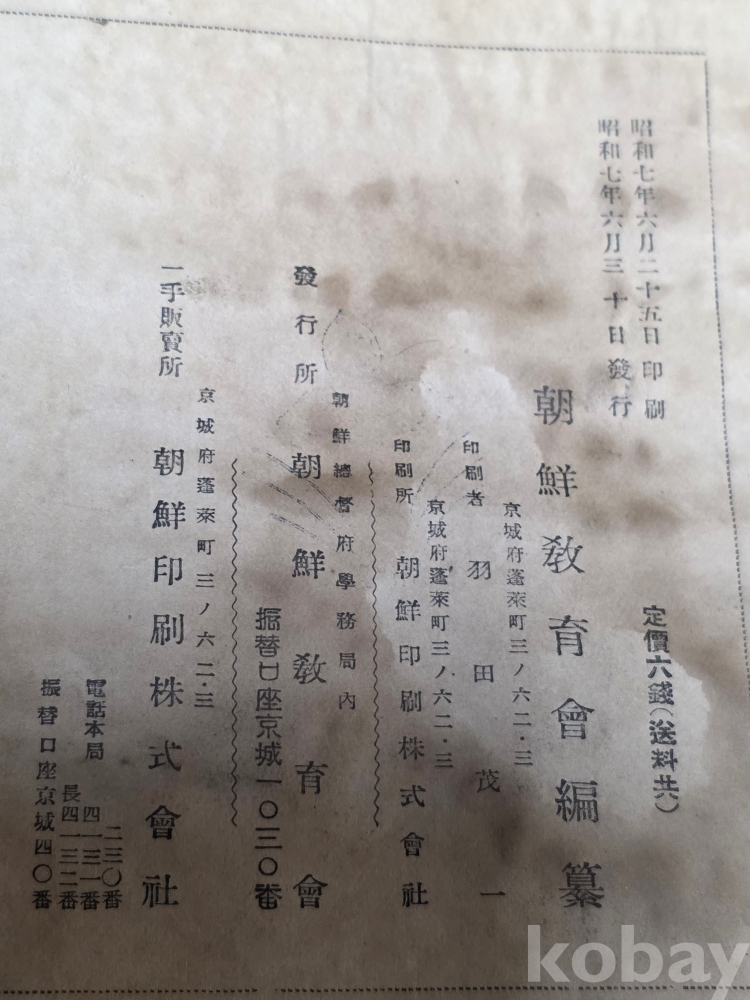 昭和七年六月二十五日印刷
昭和七年六月三十日發行
定價六錢(送料共)
朝鮮教育會編纂
京城府蓬萊町三ノ六二・三
印刷者 羽田茂一
京城府蓬萊町三ノ六二・三
印刷所 朝鮮印刷株式會社
朝鮮總督府學務局內
發行所 朝鮮教育會
振替口座京城一〇三〇番
京城府蓬萊町三ノ六二・三
一手販賣所 朝鮮印刷株式會社
電話本局
二三〇番
四一三一番
長四一三二番
振替口座京城四〇番
kobay